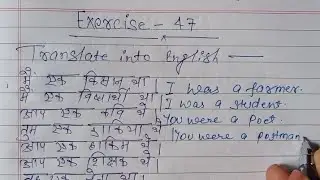 Exercise - 47
Translate into English —
मैं एक किसान था। I was a farmer.
मैं एक विद्यार्थी था। I was a student.
आप एक कवि थे। You were a Poet.
तुम एक डाकिया थे। You were a postman
आप एक हाकिम थे।
आप एक शिक्षक थे।
एक नेता था।